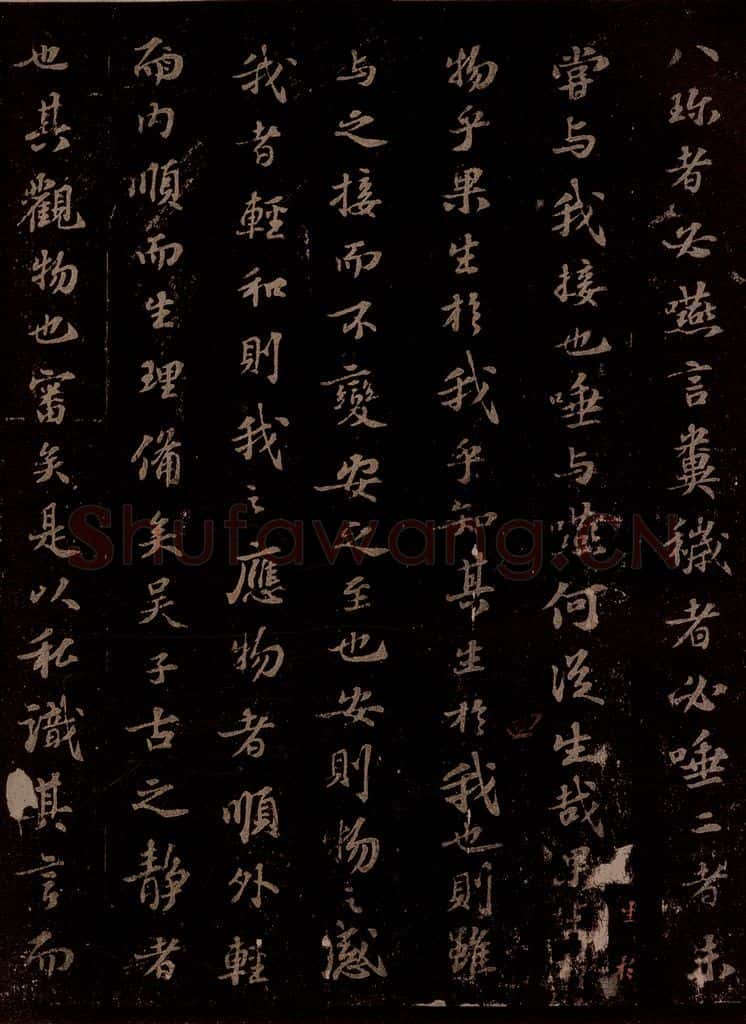 八珎者必嚥言糞穢者必唾二者未
嘗与我接也唾与嚥何從生哉果生扵
物乎果生扵我乎知其生扵我也則雖
与之接而不變安之至也安則物之感
我者輕和則我之應物者順外輕
而内順而生理備矣吴子古之静者
也其觀物也審矣是以私識其言而
Shufawang.CN